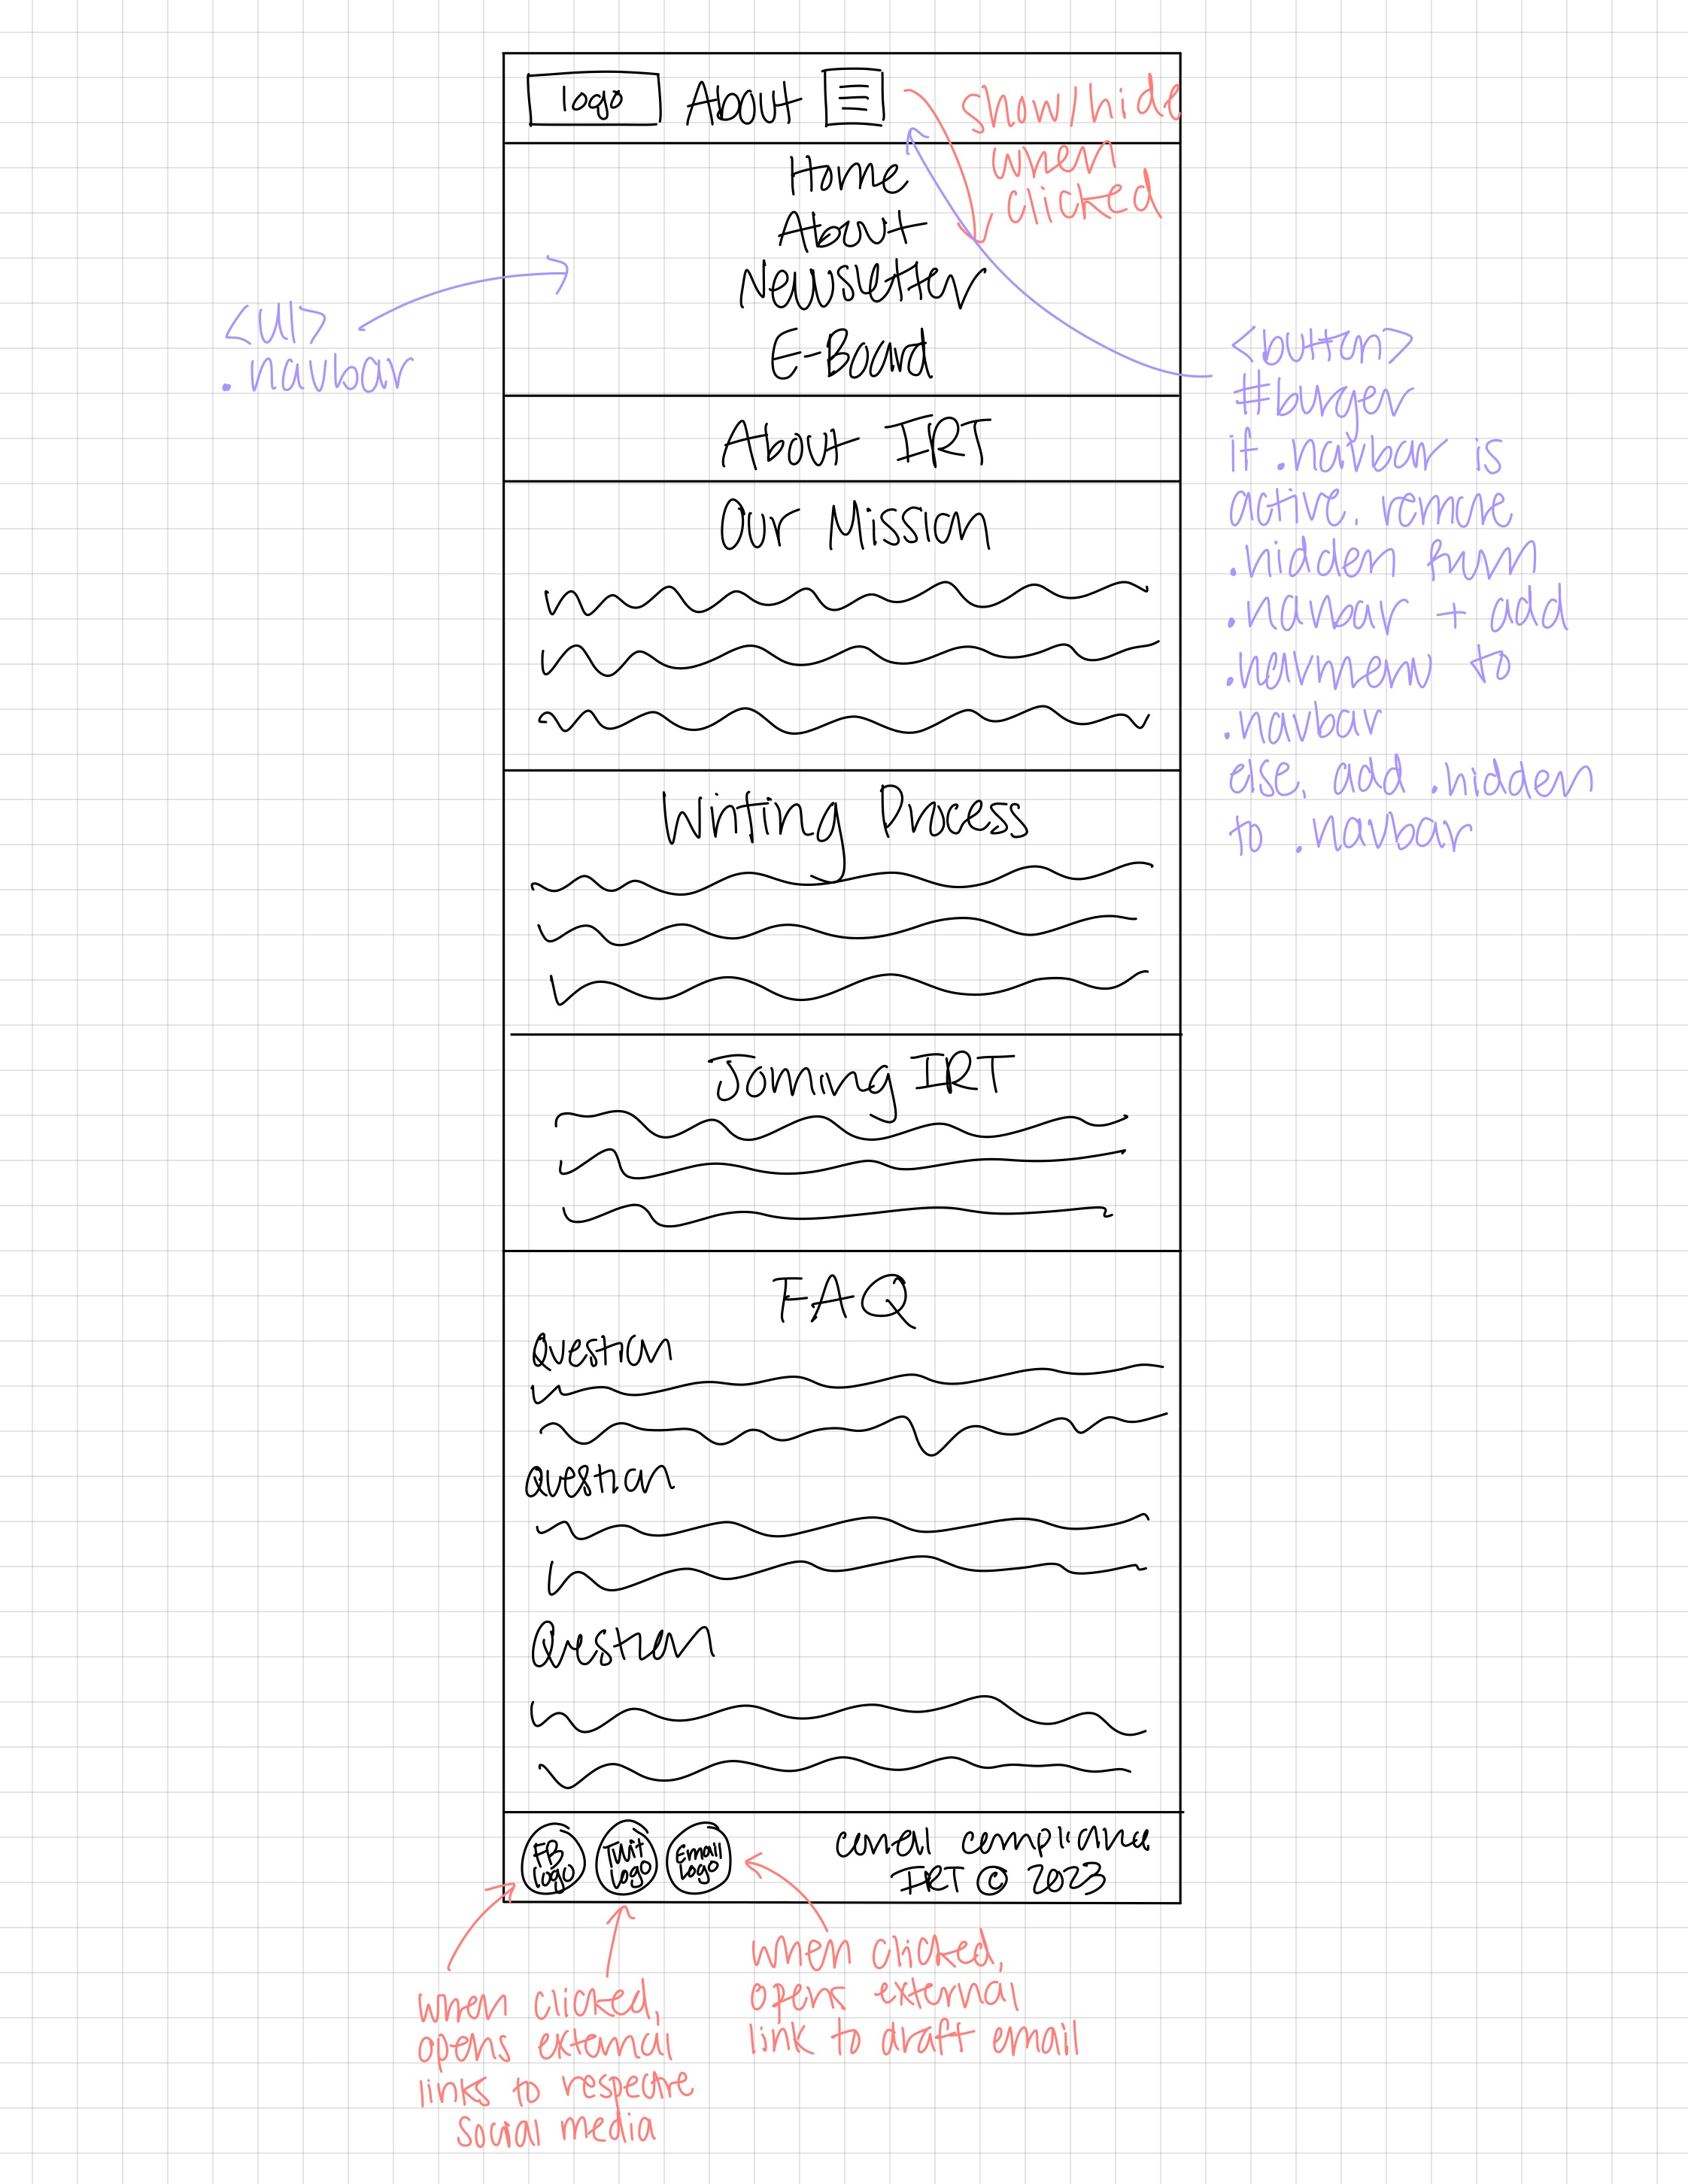 logo About
show/hide
when
clicked
Home
About
Newsletter
E-Board
<ul>
.navbar
<button>
#burger
if .navbar is
active, remove
.hidden from
.navbar + add
.navmenu to
.navbar
else, add .hidden
to .navbar
About IRT
Our Mission
Writing Process
Joining IRT
FAQ
Question
Question
Question
FB
logo
Twit
logo
Email
logo
compliance
IRT © 2023
when clicked,
opens external
links to respective
social media
when clicked,
opens external
link to draft email